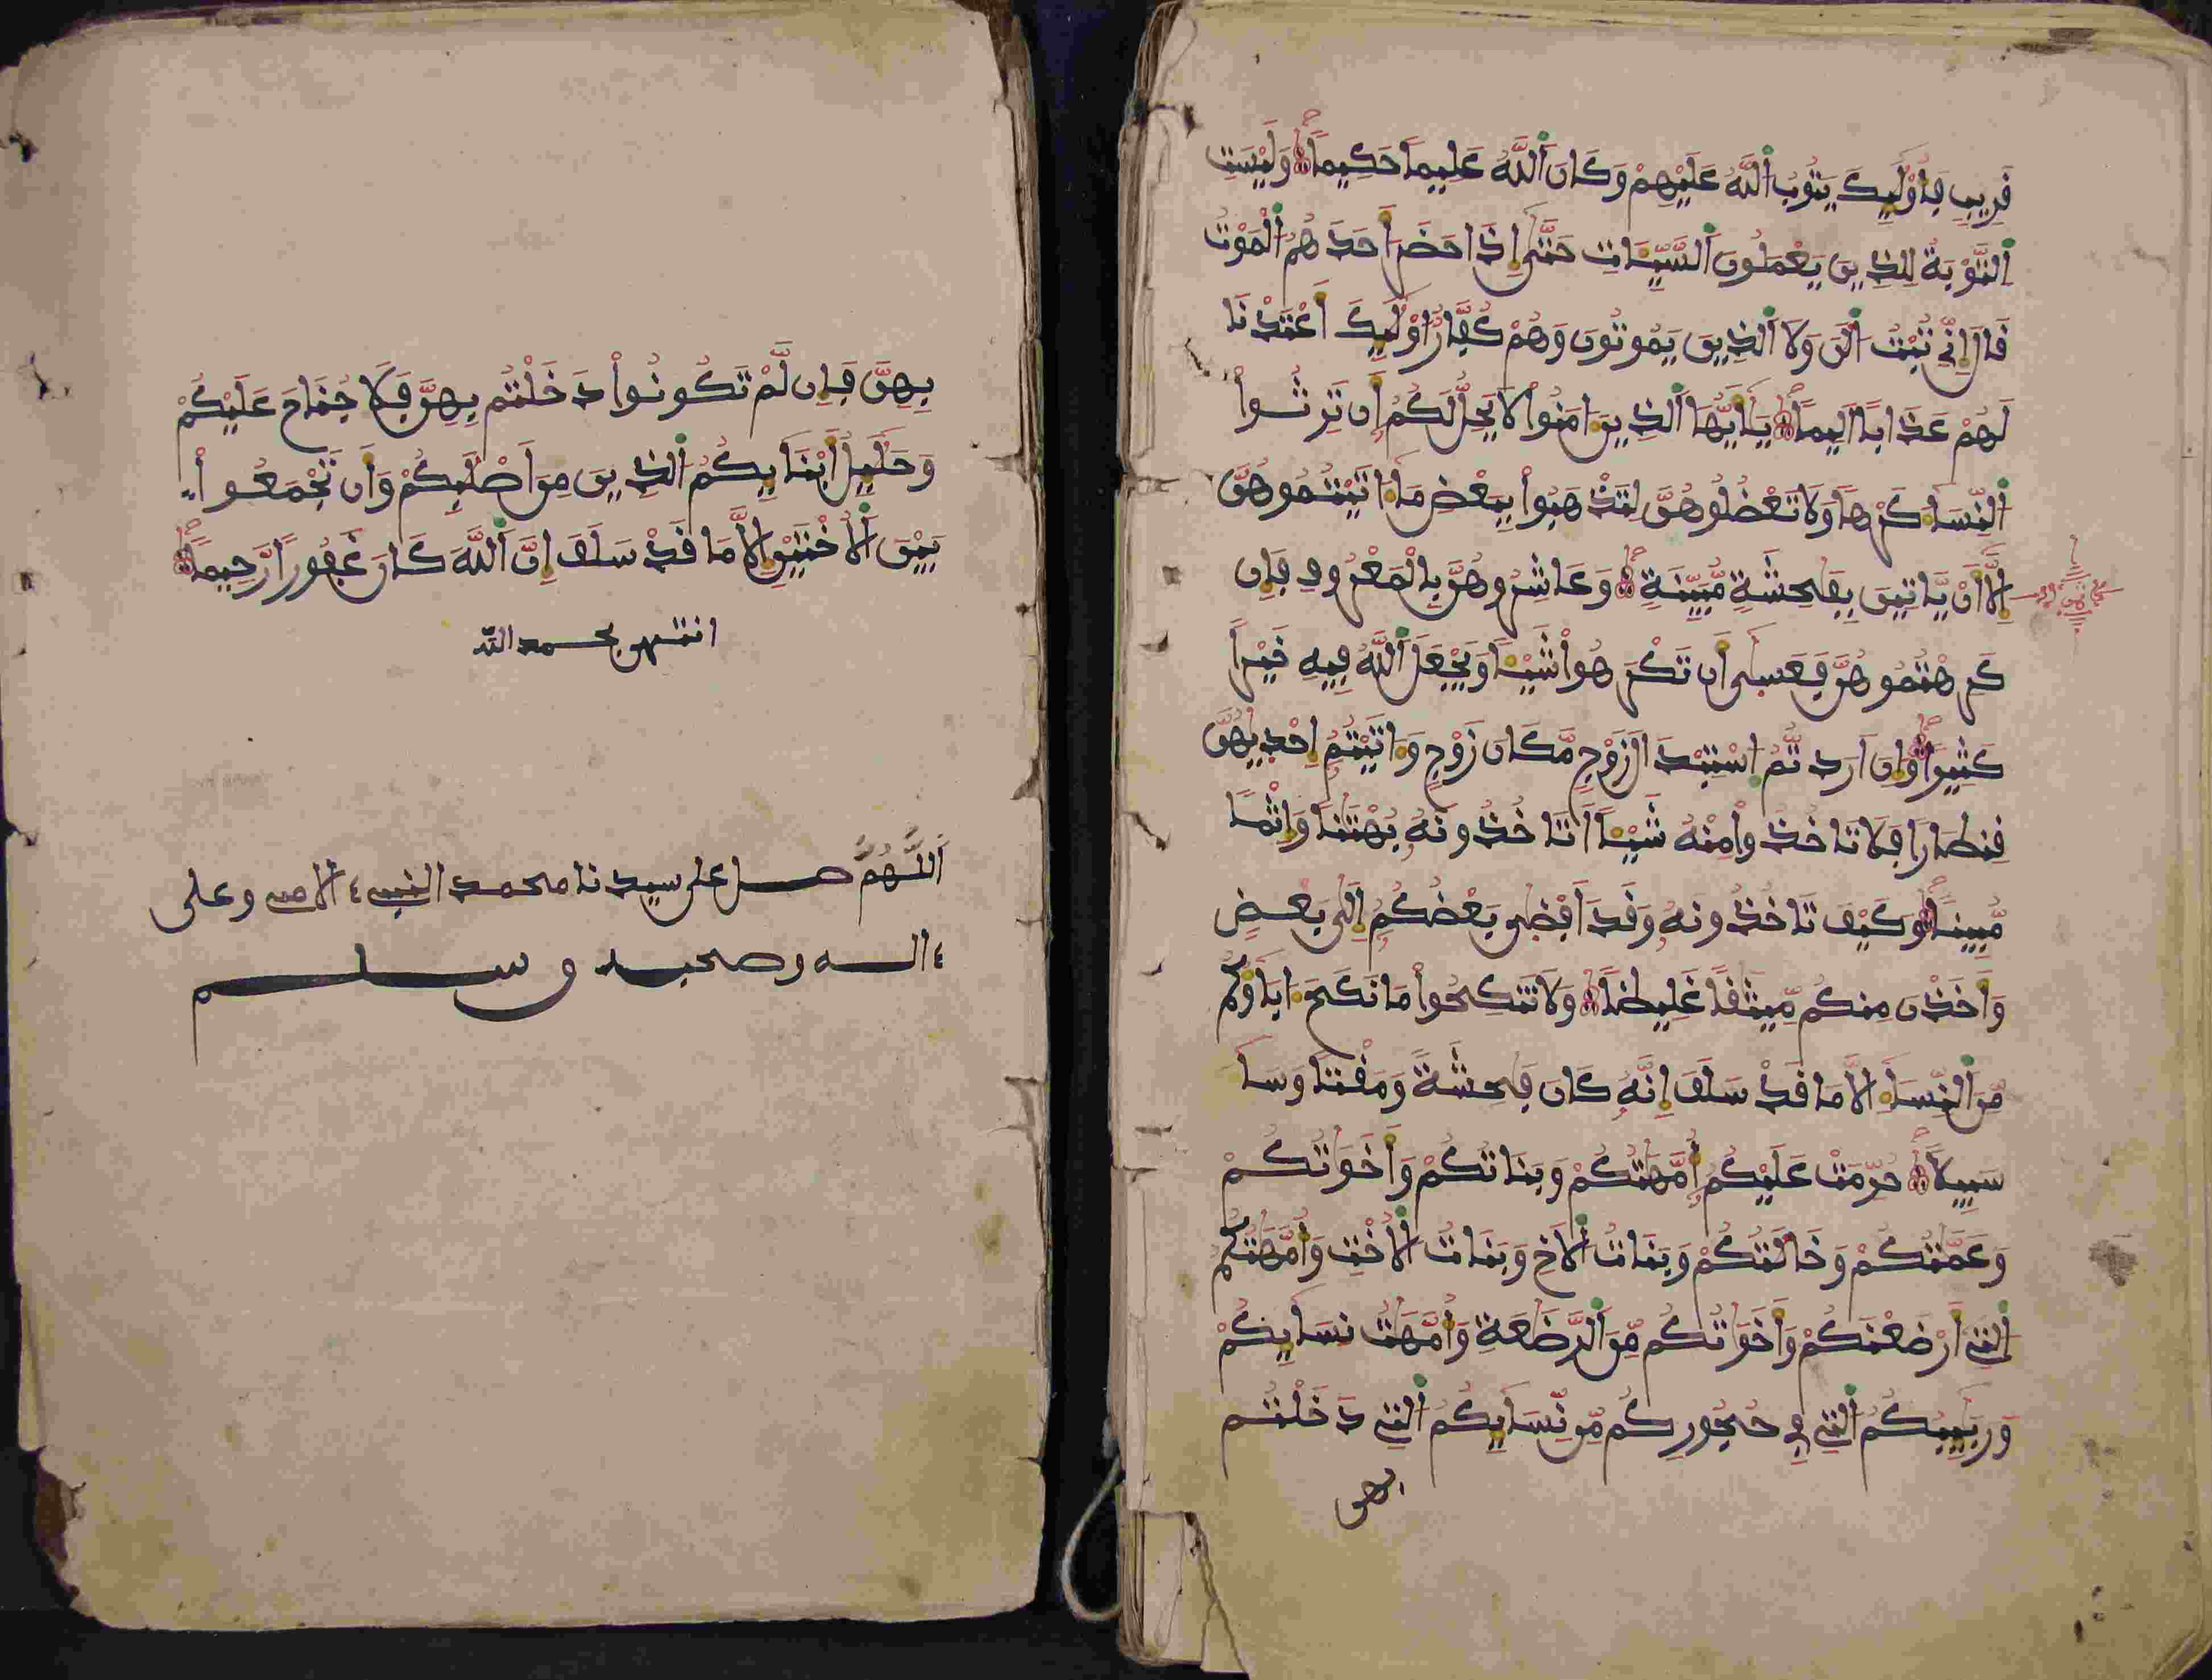 قَرِيبٍ فَأُوْلَٰٓئِكَ يَتُوبُ اُ۬للَّهُ عَلَيْهِمْ وَكَانَ اَ۬للَّهُ عَلِيماً حَكِيماً وَلَيْسَتِ
اِ۬لتَّوْبَةُ لِلذِينَ يَعْمَلُونَ اَ۬لسَّيِّـَٔاتِ حَتَّىٰٓ إِذَا حَضَرَ أَحَدَهُمُ اُ۬لْمَوْتُ
قَالَ إِنِّے تُبْتُ اُ۬لَٰنَ وَلَا اَ۬لذِينَ يَمُوتُونَ وَهُمْ كُفَّارٌ اُوْلَٰٓئِكَ أَعْتَدْنَا
لَهُمْ عَذَاباً اَلِيماً يَٰٓأَيُّهَا اَ۬لذِينَ ءَامَنُواْ لَا يَحِلُّ لَكُمُ أَن تَرِثُواْ
اُ۬لنِّسَآءَ كَرْهاً وَلَا تَعْضُلُوهُنَّ لِتَذْهَبُواْ بِبَعْضِ مَآ ءَاتَيْتُمُوهُنَّ
إِلَّآ أَنْ يَّاتِينَ بِفَٰحِشَةٍ مُّبَيِّنَةٍ وَعَاشِرُوهُنَّ بِالْمَعْرُوفِ فَإِن
كَرِهْتُمُوهُنَّ فَعَسَىٰٓ أَن تَكْرَهُواْ شَيْـٔاً وَيَجْعَلَ اَ۬للَّهُ فِيهِ خَيْراً
كَثِيراً وَإِنَ اَرَدتُّمُ اُ۪سْتِبْدَالَ زَوْجٍ مَّكَانَ زَوْجٍ وَءَاتَيْتُمُ إِحْدَيٰهُنَّ
قِنطَاراً فَلَا تَاخُذُواْ مِنْهُ شَيْـٔاً اَتَاخُذُونَهُۥ بُهْتَٰناً وَإِثْماً
مُّبِيناً وَكَيْفَ تَاخُذُونَهُۥ وَقَدَ اَفْضَىٰ بَعْضُكُمُ إِلَىٰ بَعْضٍ
وَأَخَذْنَ مِنكُم مِّيثَٰقاً غَلِيظاً وَلَا تَنكِحُواْ مَا نَكَحَ ءَابَآؤُكُم
مِّنَ اَ۬لنِّسَآءِ الَّا مَا قَدْ سَلَفَ إِنَّهُۥ كَانَ فَٰحِشَةً وَمَقْتاً وَسَآءَ
سَبِيلاً حُرِّمَتْ عَلَيْكُمُ أُمَّهَٰتُكُمْ وَبَنَاتُكُمْ وَأَخَوَٰتُكُمْ
وَعَمَّٰتُكُمْ وَخَٰلَٰتُكُمْ وَبَنَاتُ اُ۬لَاخِ وَبَنَاتُ اُ۬لُاخْتِ وَأُمَّهَٰتُكُمُ
اُ۬لَّٰتِے أَرْضَعْنَكُمْ وَأَخَوَٰتُكُم مِّنَ اَ۬لرَّضَٰعَةِ وَأُمَّهَٰتُ نِسَآئِكُمْ
وَرَبَٰٓئِبُكُمُ اُ۬لَّٰتِے فِے حُجُورِكُم مِّن نِّسَآئِكُمُ اُ۬لَّٰتِے دَخَلْتُم
بهن
بِهِنَّ فَإِن لَّمْ تَكُونُواْ دَخَلْتُم بِهِنَّ فَلَا جُنَاحَ عَلَيْكُمْ
وَحَلَٰٓئِلُ أَبْنَآئِكُمُ اُ۬لذِينَ مِنَ اَصْلَٰبِكُمْ وَأَن تَجْمَعُواْ
بَيْنَ اَ۬لُاخْتَيْنِ إِلَّا مَا قَدْ سَلَفَ إِنَّ اَ۬للَّهَ كَانَ غَفُوراً رَّحِيماً
انتهى بحمد الله
اَللَّهُمَّ صل على سيدنا محمد النبيء الامي وعلى
ءاله وصحبه وسلم